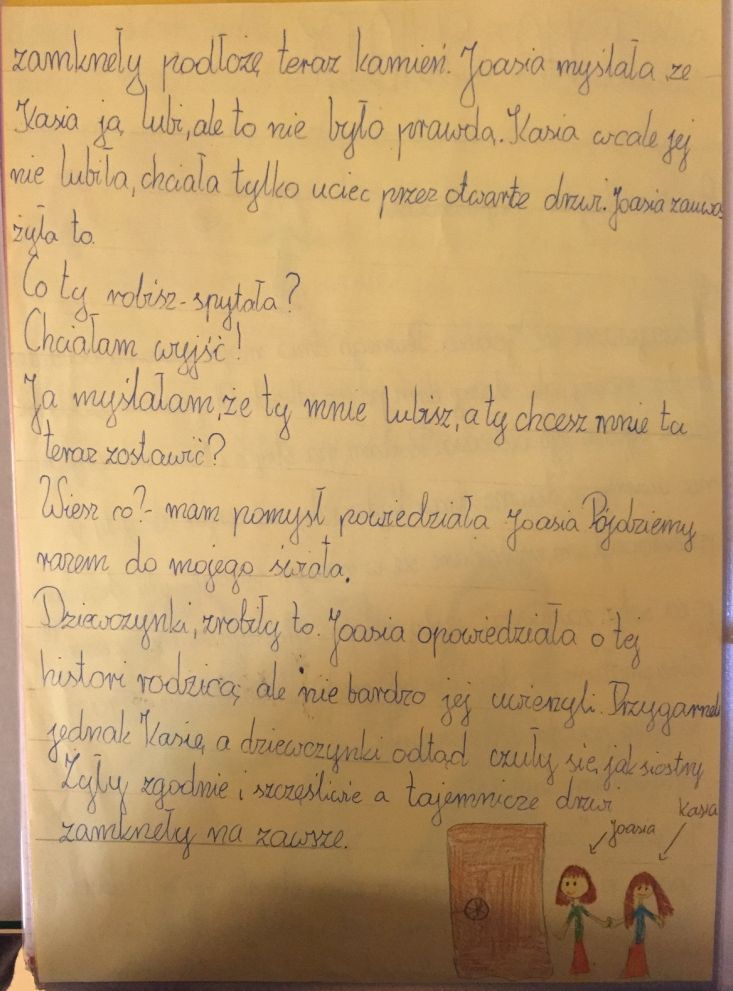 zamknęły podłożę teraz kamień. Joasia myślała ze
Kasia ją lubi, ale to nie było prawdą. Kasia wcale jej
nie lubiła, chciała tylko uciec przez otwarte drzwi. Joasia zauwa
żyła to.
Co ty robisz - spytała?
Chciałam wyjść!
Ja myślałam, że ty mnie lubisz, a ty chcesz mnie tu
teraz zostawić?
Wiesz co? - mam pomysł powiedziała Joasia Pójdziemy
razem do mojego świata.
Dziewczynki, zrobiły to. Joasia opowiedziała o tej
histori rodzicą, ale nie bardzo jej uwierzyli. Przygarneli
jednak Kasię, a dziewczynki odtąd czuły się, jak siostry
Żyły zgodnie i szczęśliwie a tajemnicze drzwi
zamknęły na zawsze.
Joasia
Kasia